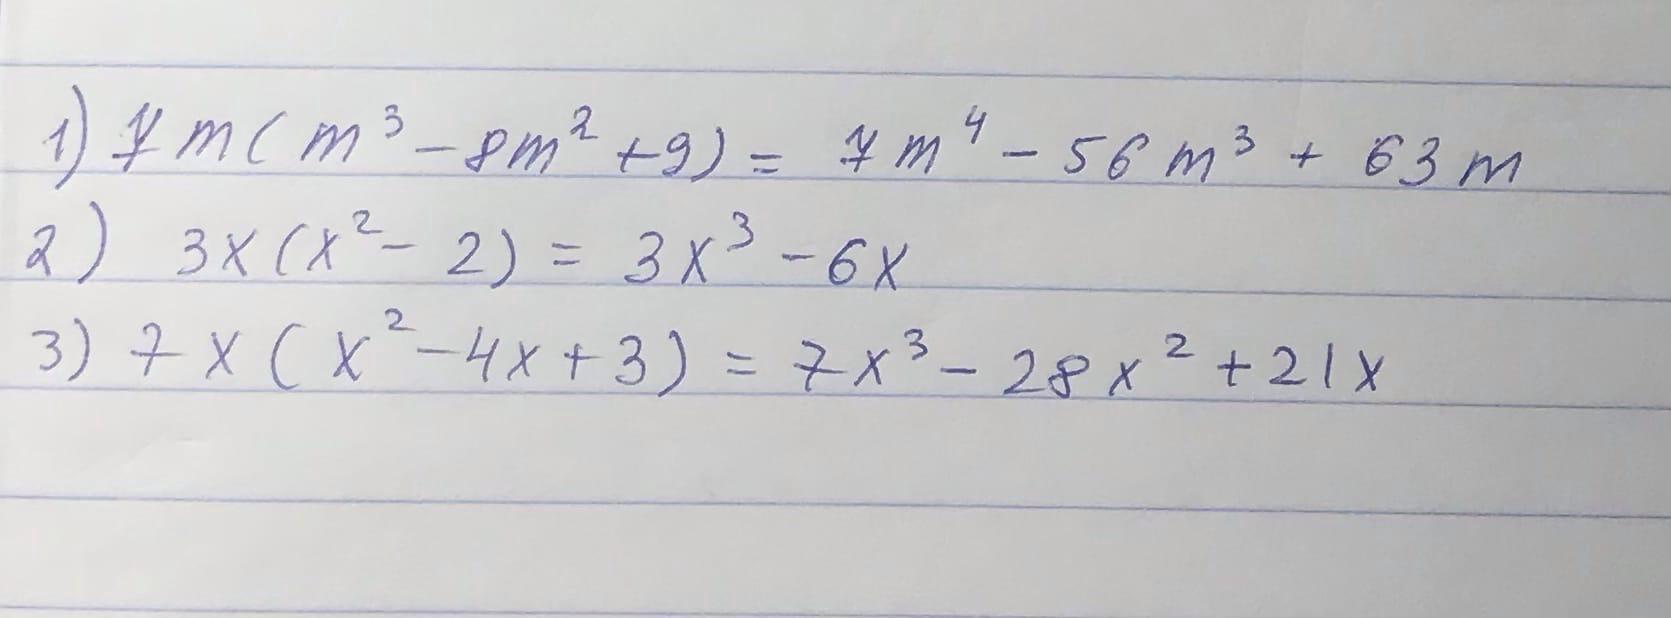 1) 7m(m³-8m²+9)= 7m⁴-56m³+63m
2) 3x(x²-2)=3x³-6x
3) 7x(x²-4x+3)=7x³-28x²+21x